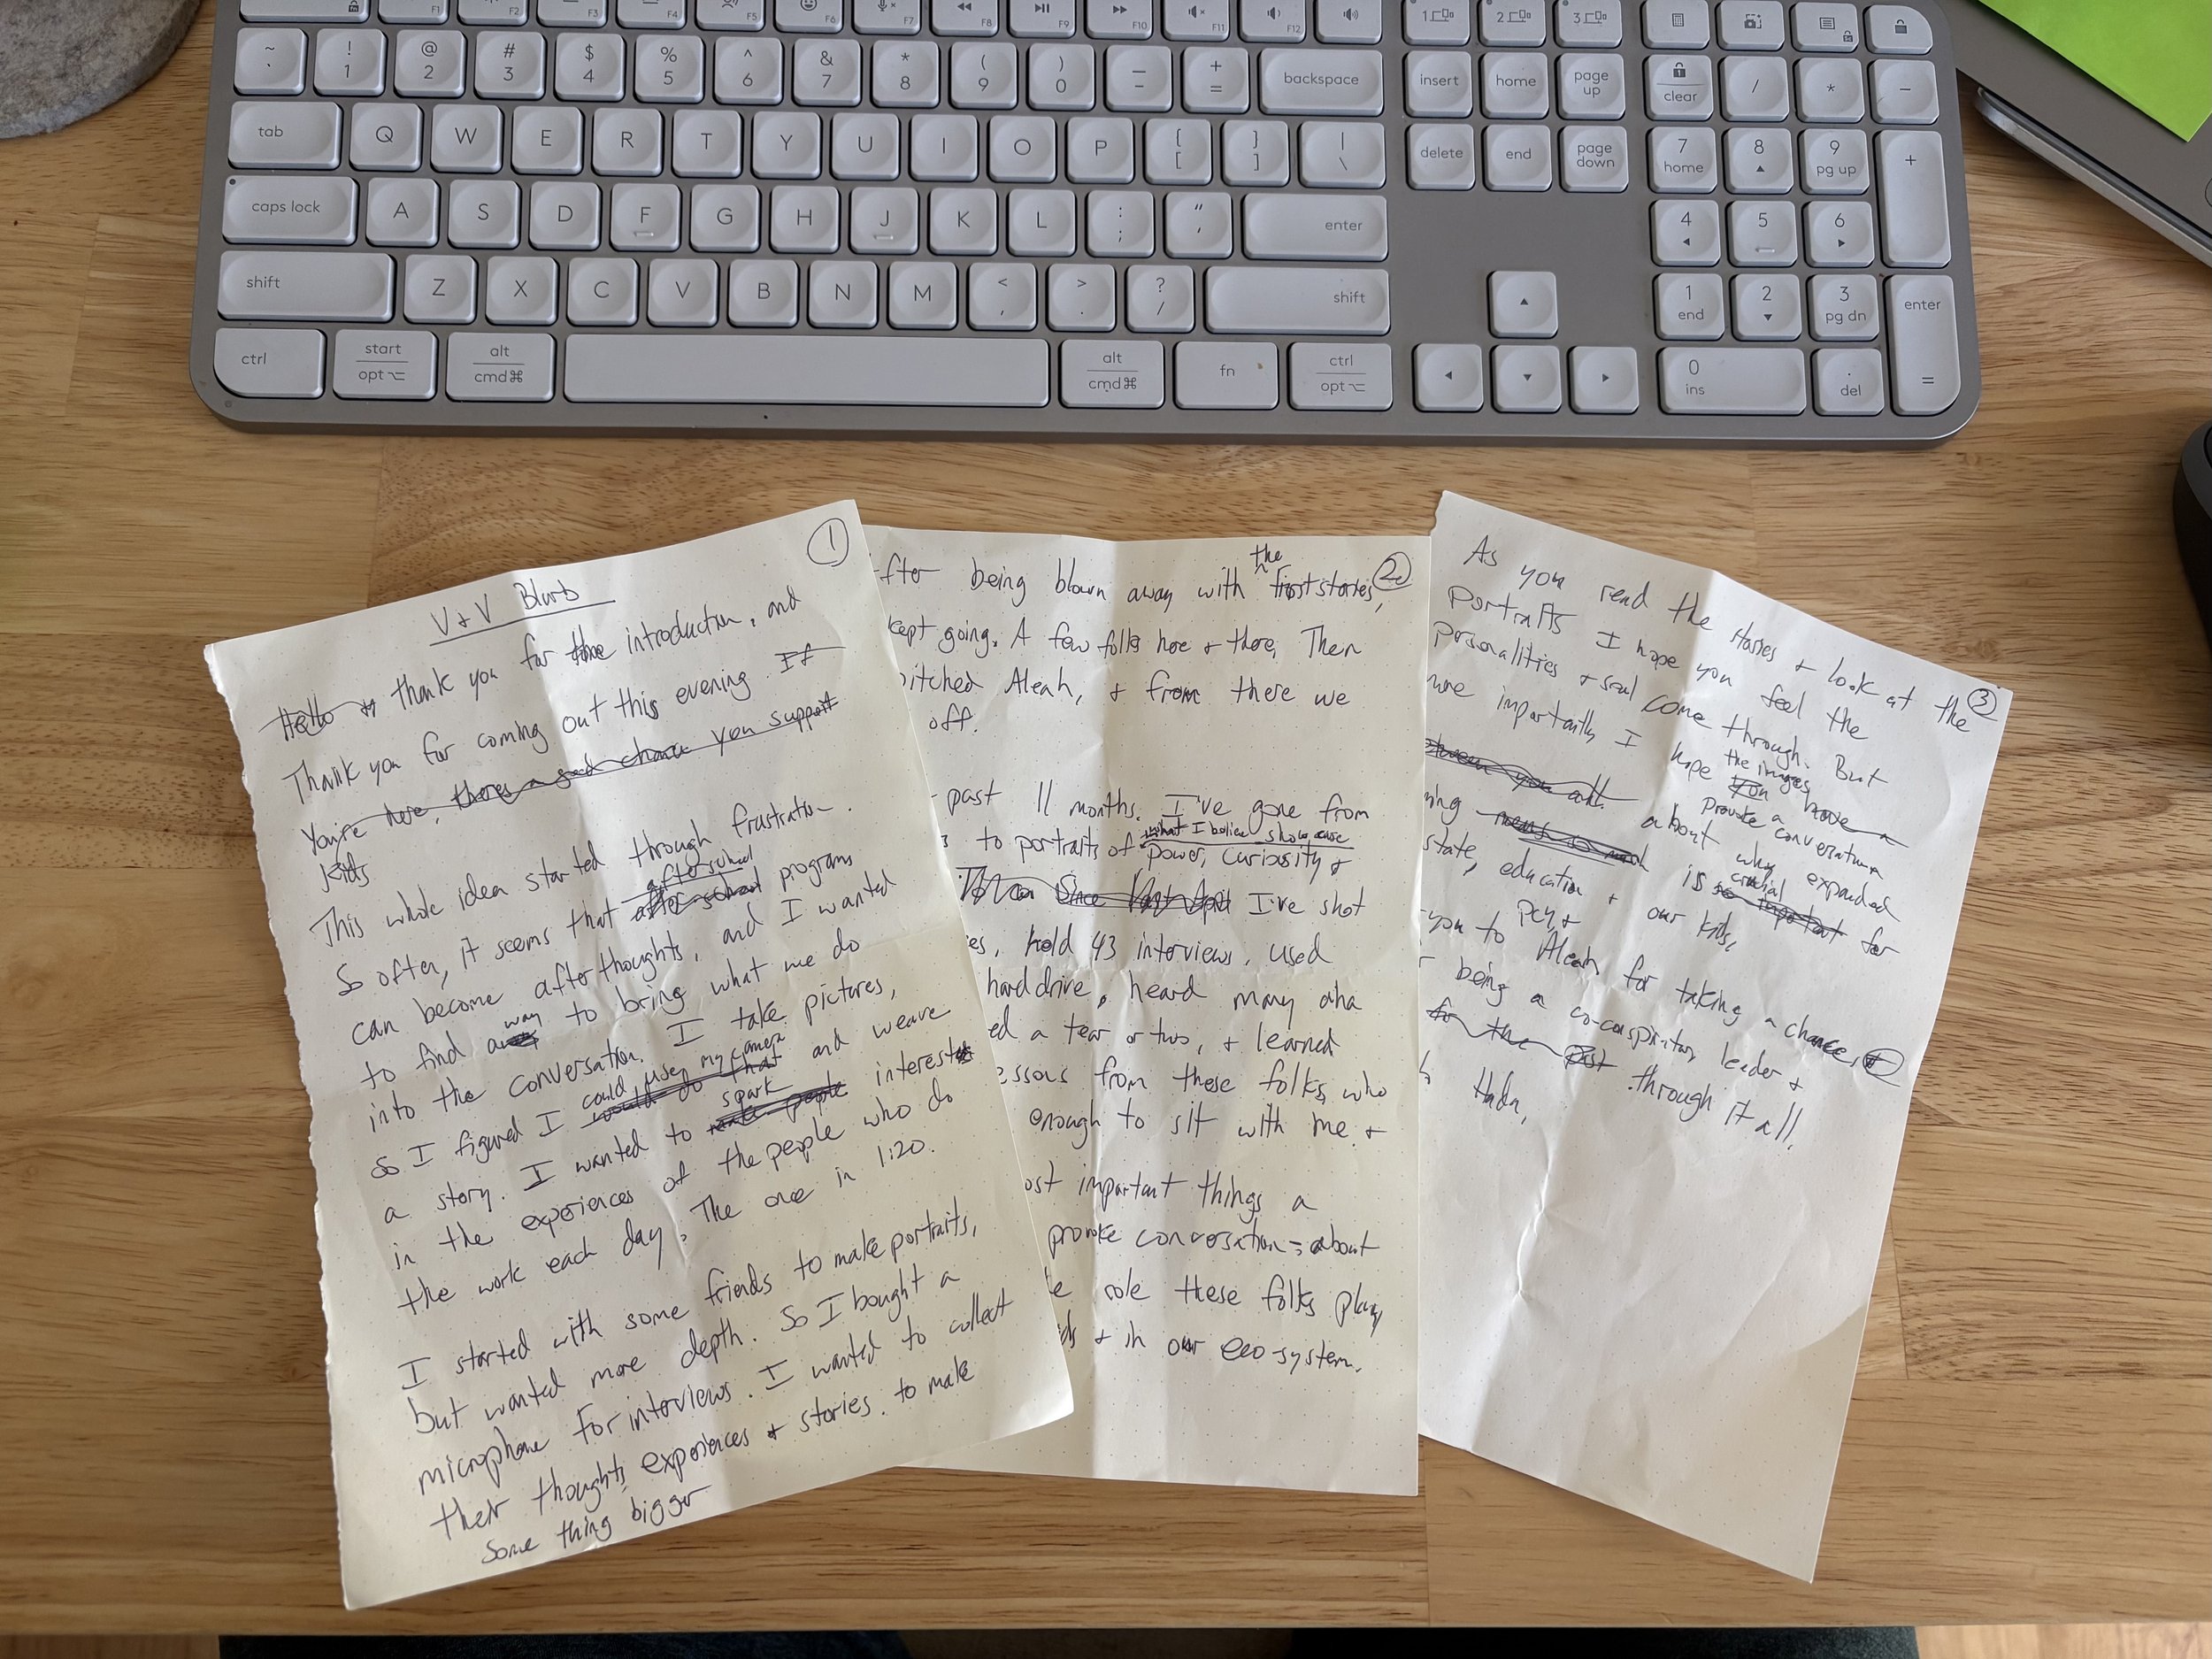 F1
F2
F3
F4
F5
F6
F7
F8
F9
F10
F11
F12
1
2
3
~ `
! 1
@ 2
# 3
$ 4
% 5
^ 6
& 7
* 8
( 9
) 0
_ -
+ =
backspace
insert
home
page up
clear
/
*
-
tab
Q W E R T Y U I O P
{ [
} ]
| \
delete
end
page down
7 home
8
9 pg up
+
caps lock
A S D F G H J K L
: ;
" '
enter
4
5
6
shift
Z X C V B N M
< ,
> .
? /
shift
1 end
2
3 pg dn
enter
=
ctrl
start opt
alt cmd ⌘
alt cmd ⌘
fn
ctrl opt
0 ins
. del
1
V & V Blurb
Hello thank you for introduction, and
Thank you for coming out this evening. If
You're here, there's a good chance you support
kids
This whole idea started through frustration.
after school
So often, it seems that after school programs
can become afterthoughts, and I wanted
way
to find a to bring what we do
into the conversation. I take pictures,
could use my camera
so I figured I would do that and weave
spark
a story. I wanted to make people interest
in the experiences of the people who do
the work each day. The one in 1:20.
I started with some friends to make portraits,
but wanted more depth. So I bought a
microphone for interviews. I wanted to collect
their thoughts, experiences & stories. to make
Something bigger
2
the
fter being blown away with first stories,
kept going. A few folks here & there, Then
pitched Aleah, & from there we
off.
past 11 months. I've gone from
what I believe showcase
to portraits of power, curiosity &
Since I've shot
held 43 interviews, used
hard drive, heard many aha
ed a tear or two, & learned
essons from these folks who
enough to sit with me &
ost important things a
provoke conversation about
role these folks play
ds & in our eco-system.
3
As you read the stories & look at the
Portraits I hope you feel the
Personalities & soul come through. But
more importantly I hope you have a
the images
Provoke a conversation
between you and
ning about why expanded
is so important for
crucial
state, education & our kids,
PCY, &
you to Aleah for taking a chance,
being a co-conspirator, leader &
for the past through it all.
Hada,